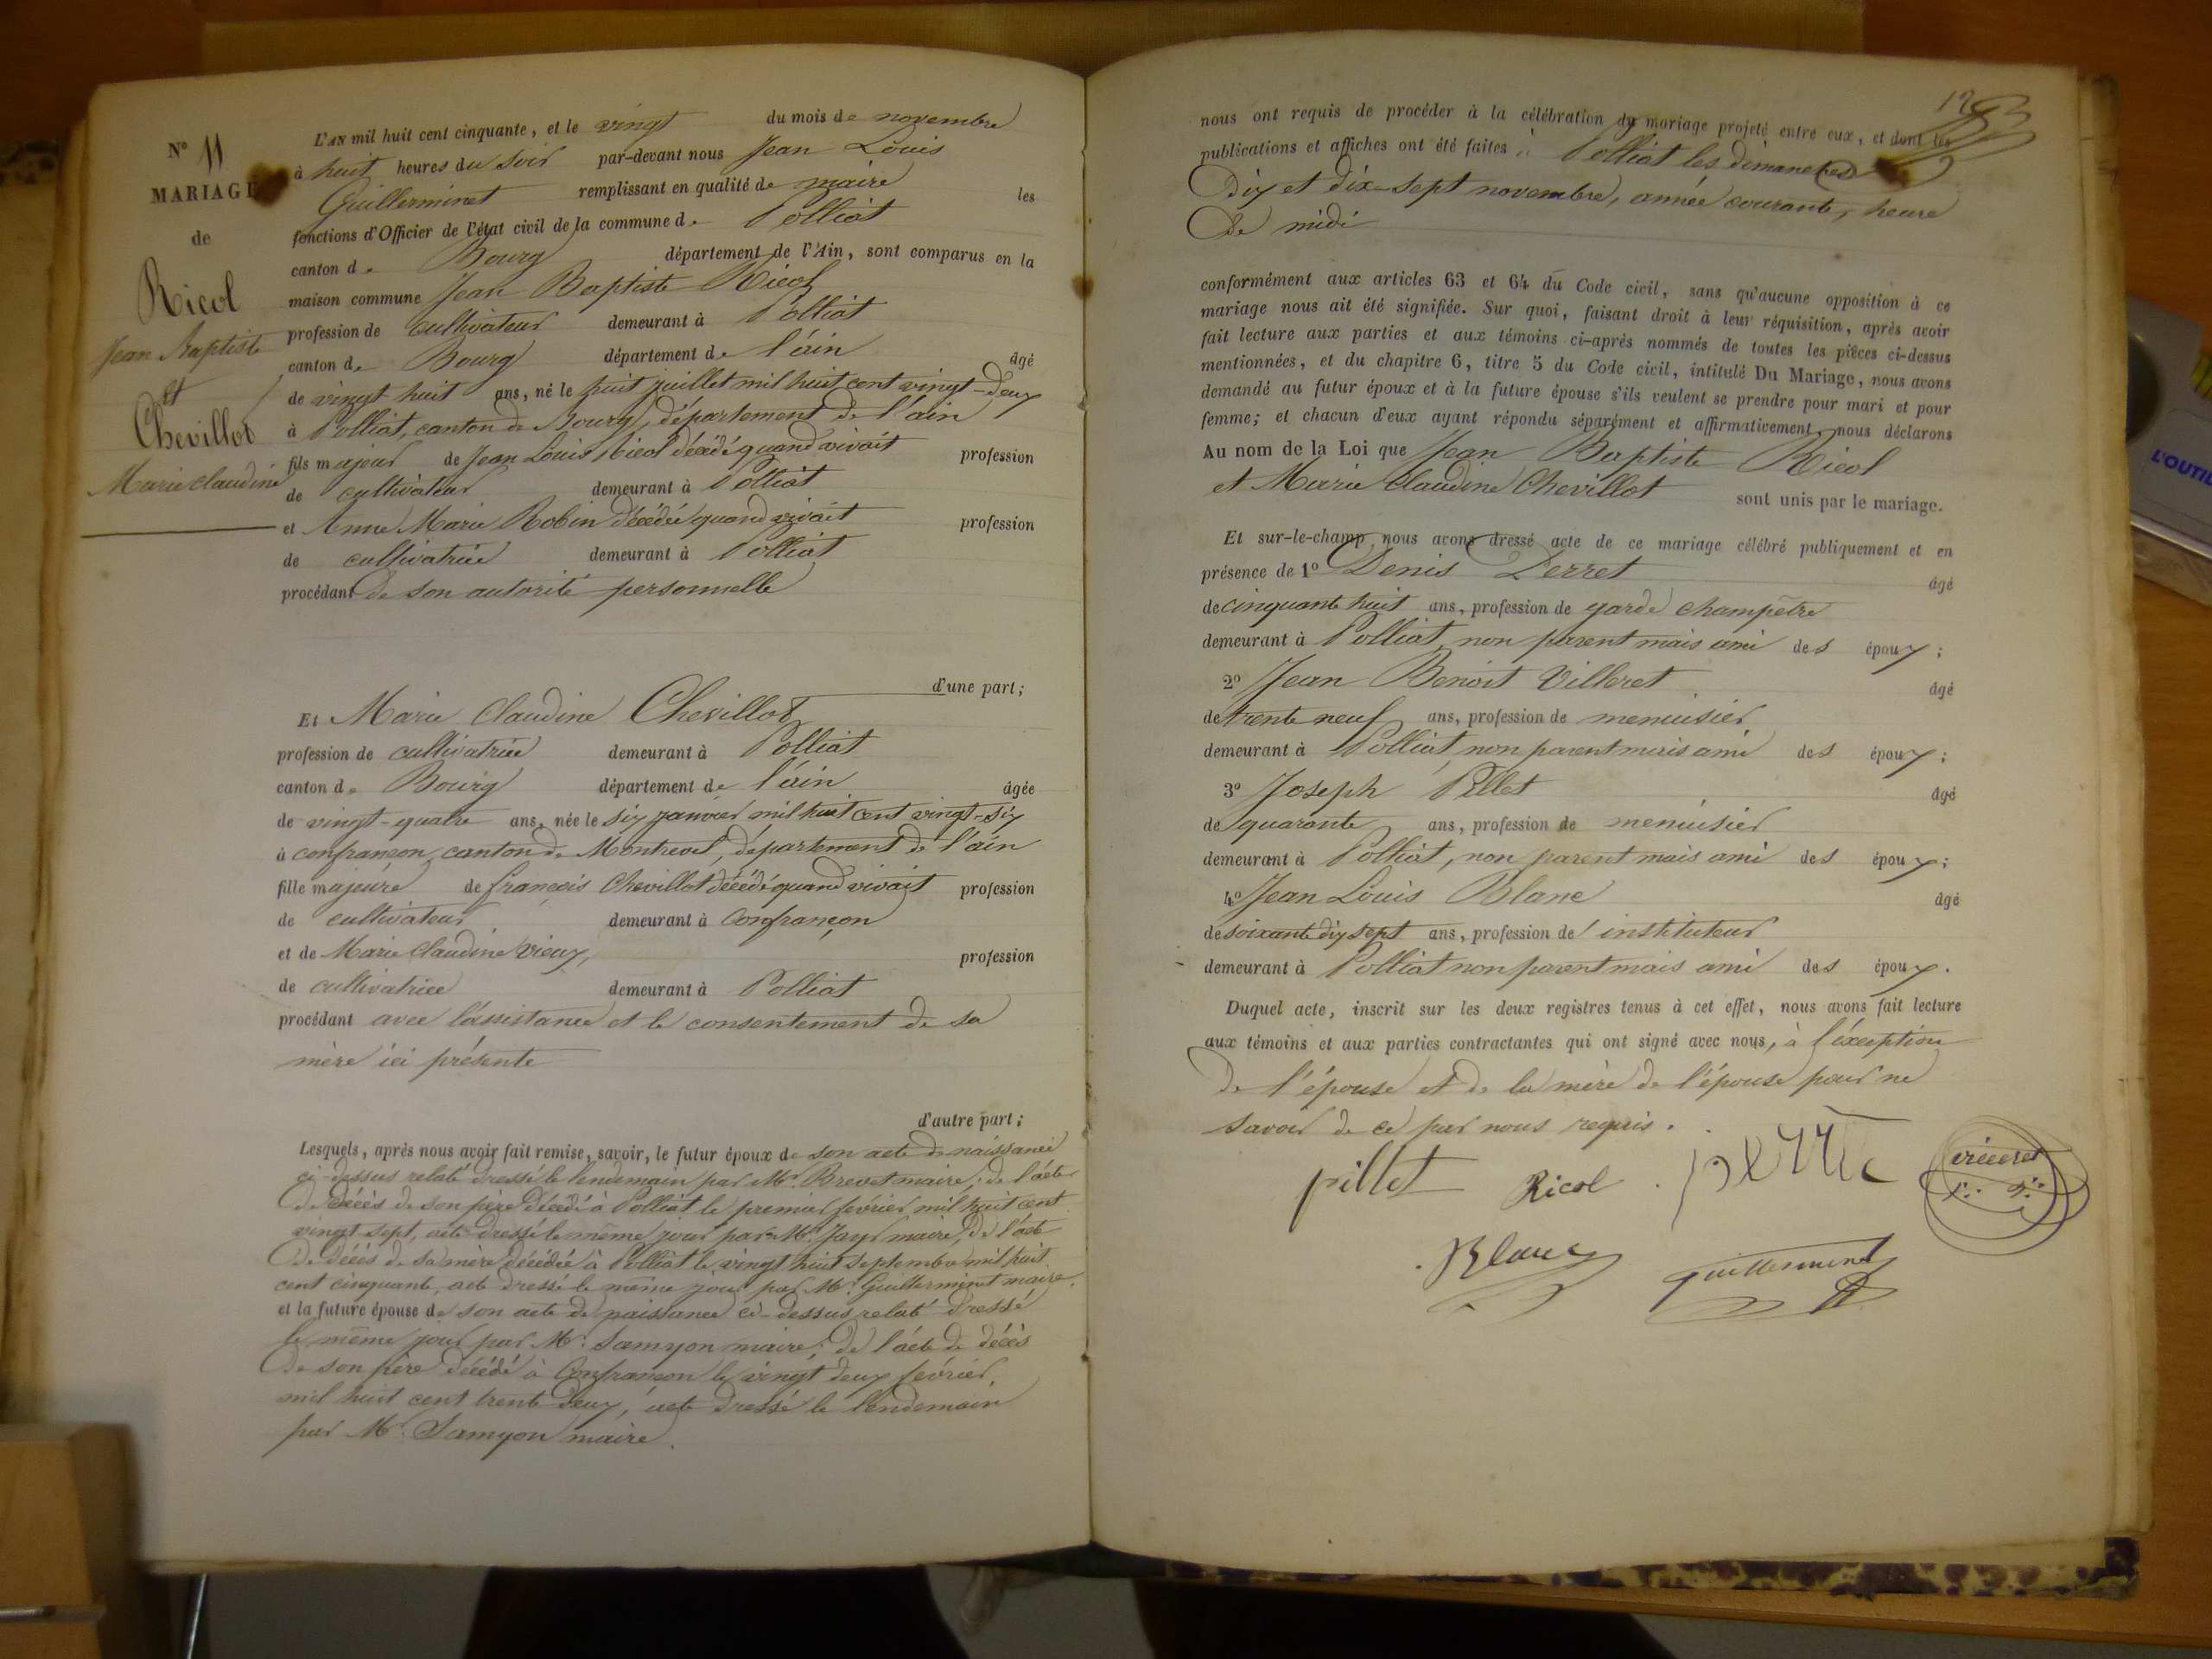 N° 11
MARIAGE
de
Ricol
Jean Baptiste
et
Chevillot
Marie Claudine
L'AN mil huit cent cinquante, et le vingt du mois de novembre
à huit heures du soir par-devant nous Jean Louis
Guillerminet remplissant en qualité de maire les
fonctions d'Officier de l'état civil de la commune de Polliat
canton de Bourg département de l'Ain, sont comparus en la
maison commune Jean Baptiste Ricol
profession de cultivateur demeurant à Polliat
canton de Bourg département de l'ain âgé
de vingt huit ans, né le huit juillet mil huit cent vingt-deux
à Polliat, canton de Bourg, département de l'ain
fils majeur de Jean Louis Ricol décédé quand vivait profession
de cultivateur demeurant à Polliat
et Anne Marie Robin décédée quand vivait profession
de cultivatrice demeurant à Polliat
procédant de son autorité personnelle
d'une part;
Et Marie Claudine Chevillot
profession de cultivatrice demeurant à Polliat
canton de Bourg département de l'ain âgée
de vingt-quatre ans, née le six janvier mil huit cent vingt-six
à confrançon, canton de Montrevel, département de l'ain
fille majeure de françois Chevillot décédé quand vivait profession
de cultivateur demeurant à Confrançon
et de Marie Claudine Vieux, profession
de cultivatrice demeurant à Polliat
procédant avec l'assistance et le consentement de sa
mère ici présente
d'autre part;
Lesquels, après nous avoir fait remise, savoir, le futur époux de son acte de naissance
ci-dessus relaté dressé le lendemain par Mr. Brevet maire; de l'acte
de décès de son père décédé à Polliat le premier février mil huit cent
vingt sept, acte dressé le même jour par Mr. Jayr maire, de l'acte
de décès de sa mère décédée à Polliat le vingt huit septembre mil huit
cent cinquante, acte dressé le même jour par Mr. Guillerminet maire.
et la future épouse de son acte de naissance ci-dessus relaté dressé
le même jour par Mr. Samyon maire; de l'acte de décès
de son père décédé à Confrançon le vingt deux février,
mil huit cent trente deux, acte dressé le lendemain
par Mr. Samyon maire.
nous ont requis de procéder à la célébration du mariage projeté entre eux, et dont les
publications et affiches ont été faites à Polliat les dimanches
dix et dix-sept novembre, année courante, heure
de midi
conformément aux articles 63 et 64 du Code civil, sans qu'aucune opposition à ce
mariage nous ait été signifiée. Sur quoi, faisant droit à leur réquisition, après avoir
fait lecture aux parties et aux témoins ci-après nommés de toutes les pièces ci-dessus
mentionnées, et du chapitre 6, titre 5 du Code civil, intitulé Du Mariage, nous avons
demandé au futur époux et à la future épouse s'ils veulent se prendre pour mari et pour
femme; et chacun d'eux ayant répondu séparément et affirmativement, nous déclarons
Au nom de la Loi que Jean Baptiste Ricol
et Marie Claudine Chevillot sont unis par le mariage.
Et sur-le-champ nous avons dressé acte de ce mariage célébré publiquement et en
présence de 1° Denis Perret âgé
de cinquante huit ans, profession de garde champêtre
demeurant à Polliat, non parent mais ami des époux;
2° Jean Benoit Villeret âgé
de trente neuf ans, profession de menuisier
demeurant à Polliat, non parent mais ami des époux;
3° Joseph Pillet âgé
de quarante ans, profession de menuisier
demeurant à Polliat, non parent mais ami des époux;
4° Jean Louis Blanc âgé
de soixante dix sept ans, profession de instituteur
demeurant à Polliat non parent mais ami des époux.
Duquel acte, inscrit sur les deux registres tenus à cet effet, nous avons fait lecture
aux témoins et aux parties contractantes qui ont signé avec nous, à l'éxception
de l'épouse et de la mère de l'épouse pour ne
savoir de ce par nous requis.
pillet Ricol
Blanc guillerminet
L'OUTIL